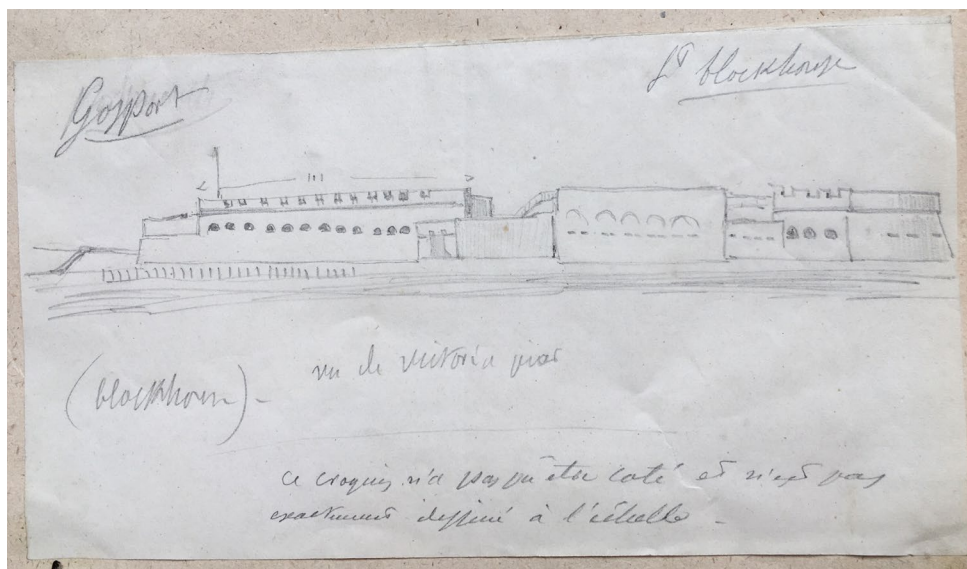 Gosport
Ft blockhouse
(blockhouse) -
vu de victoria pier
ce croquis n'a pas pu être coté et n'est pas
exactement dessiné à l'échelle -